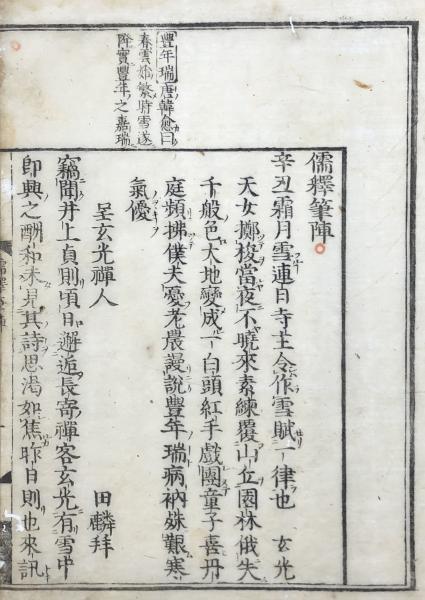 豐年瑞唐韓愈曰
春雲始繁時雪遂
降實豐年之嘉瑞
儒釋筆陣
辛丑霜月雪連日寺主令作雪賦一律也 玄光
天女擲梭當夜不曉來素練覆山丘園林俄失
千般色大地變成一白頭紅手戲團童子喜丹
庭頻拂僕夫憂老農謾說豐年瑞病衲殊艱寒
氣優
呈玄光禪人 田麟拜
竊聞井上貞則頃日邂逅長寄禪客玄光有雪中
即興之酬和未見其詩思渴如焦昨日則也來訊